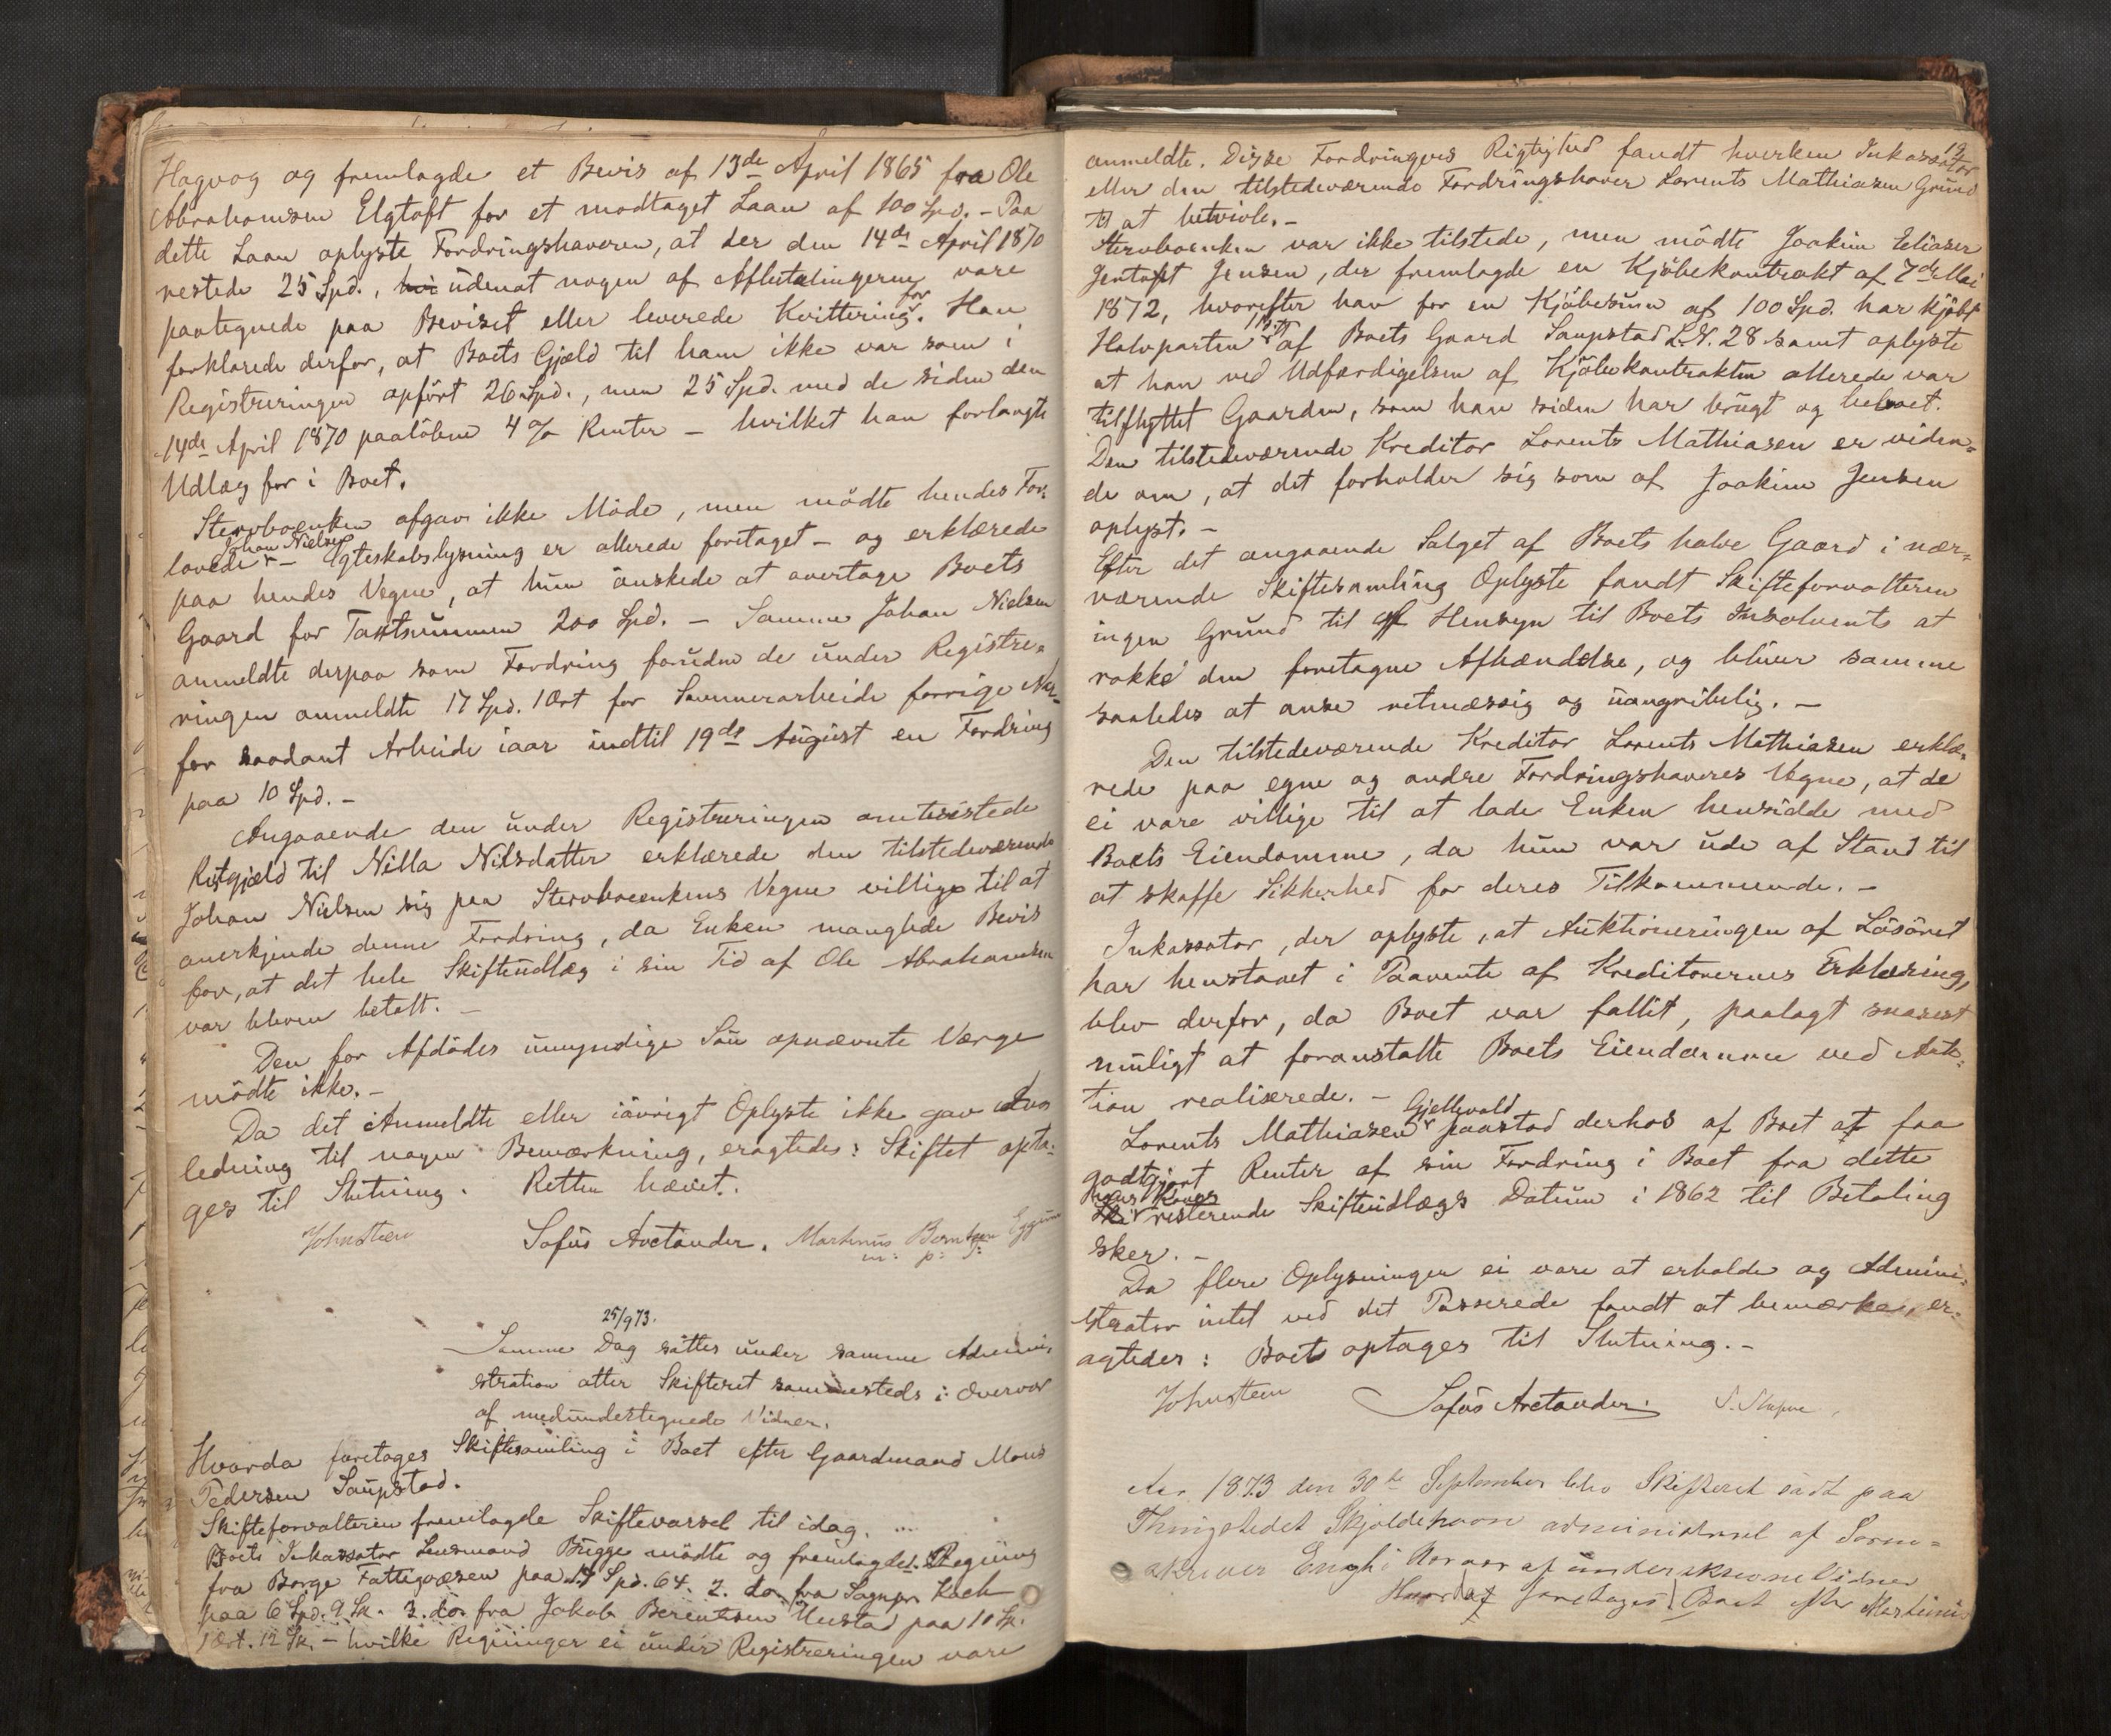 Hagvag og fremlagde et Bevis af 13de April 1865 fra Ole
Abrahamsen Elgtoft for et modtaget Laan af 100 Spd. - Paa
dette Laan oplyste Fordringshaveren, at der den 14de April 1870
restede 25 Spd., udenat nogen af Afbetalingerne vare
paategnede paa Beviset eller leverede Kvittering for. Han
forklarede derfor, at Boets Gjæld til ham ikke var som i
Registreringen opført 26 Spd., men 25 Spd. med de siden den
14de April 1870 paaløbne 4 % Renter - hvilket han forlangte
Udlæg for i Boet.
Stervboenken afgav ikke Møde, men mødte hendes For-
lovede Johan Nielsen - Egteskabslysning er allerede foretaget - og erklærede
paa hendes Vegne, at hun ønskede at overtage Boets
Gaard for Taxtsummen 200 Spd. - Samme Johan Nielsen
anmeldte derpaa som Fordring foruden de under Registre-
ringen anmeldte 17 Spd. 1 Ort for Sommerarbeide forrige Aar,
for saadant Arbeide iaar indtil 19de August en Fordring
paa 10 Spd. -
Angaaende den under Registreringen omtvistede
Restgjæld til Nilla Nilsdatter erklærede den tilstedeværende
Johan Nielsen sig paa Stervboenkens Vegne villige til at
anerkjende denne Fordring, da Enken manglede Bevis
for, at det hele Skifteudlæg i sin Tid af Ole Abrahamsen
var bleven betalt. -
Den for Afdødes umyndige Søn opnævnte Værge
mødte ikke. -
Da det Anmeldte eller iøvrigt Oplyste ikke gav An-
ledning til nogen Bemærkning, eragtedes: Skiftet opta-
ges til Slutning. Retten hævet.
Johnsteen Sofus Arctander. Martinus Berntsen Eggum
m: p: P:
25/9 73.
Samme Dag sattes under samme Admini-
stration atter Skifteret sammesteds i Overvær
af medundertegnede Vidner.
Hvorda foretages Skiftesamling i Boet efter Gaardmand Mons
Pedersen Saupstad.
Skifteforvalteren fremlagde Skiftevarsel til idag. ...
Boets Inkassator Lensmand Brigge mødte og fremlagde 1. Regning
fra Borge Fattigvæsen paa 14 Spd. 64. 2. do. fra Sognpr. Koch
paa 6 Spd. 9 Sk. 3. do. fra Jakob Berentsen Unstad paa 10 Sp.
1 Ort. 12 Sk. - hvilke Regninger ei under Registreringen vare
12
anmeldte. Disse Fordringers Rigtighed fandt hverken Inkassator
eller den tilstedeværende Fordringshaver Lorents Mathiasen Grund
til at betvivle. -
Stervboenken var ikke tilstede, men mødte Joakim Eeliaser
Jentoft Jensen, der fremlagde en Kjøbekontrakt af 7de Mai
1872, hvorefter han for en Kjøbesum af 100 Spd. har kjøbt
Halvparten af Boets Gaard Saupstad L.N. 28 samt oplyste
at han ved Udfærdigelsen af Kjøbekontrakten allerede var
tilflyttet Gaarden, som han siden har brugt og beboet.
Den tilstedeværende Kreditor Lorents Mathiasen er viden-
de om, at det forholder sig som af Joakim Jensen
oplyst. -
Efter det angaaende Salget af Boets halve Gaard i nær-
værende Skiftesamling Oplyste fandt Skifteforvalteren
ingen Grund til af Hensyn til Boets Insolvents at
rokke den foretagne Afhændelse, og bliver samme
saaledes at anse retmæssig og uangribelig. -
Den tilstedeværende Kreditor Lorents Mathiasen erklæ-
rede paa egne og andre Fordringshaveres Vegne, at de
ei vare villige til at lade Enken hensidde med
Boets Eiendomme, da hun var ude af Stand til
at skaffe Sikkerhed for deres Tilkommende. -
Inkassator, der oplyste, at Auktioneringen af Løsøret
har henstaaet i Paavente af Kreditorernes Erklæring,
blev derfor, da Boet var fallit, paalagt snarest
muligt at foranstalte Boets Eiendomme ved Auk-
tion realiserede. -
Lorents Mathiasen Gjellvold paastod derhos af Boet at faa
godtgjort Renter af sin Fordring i Boet fra dette
hans Kones resterende Skifteudlægs Datum i 1862 til Betaling
sker. -
Da flere Oplysninger ei vare at erholde og Admini-
strator intet ved det Passerede fandt at bemærke, er-
agtedes: Boet optages til Slutning. -
Johnsteen Sofus Arctander.
Aar 1873 den 30te September blev Skifteret sadt paa
Thingstedet Skjoldehavn administreret af Soren-
skriver Engh i Nærvær af underskrevne Vidner
Hvorda foretages Boet efter Martinus